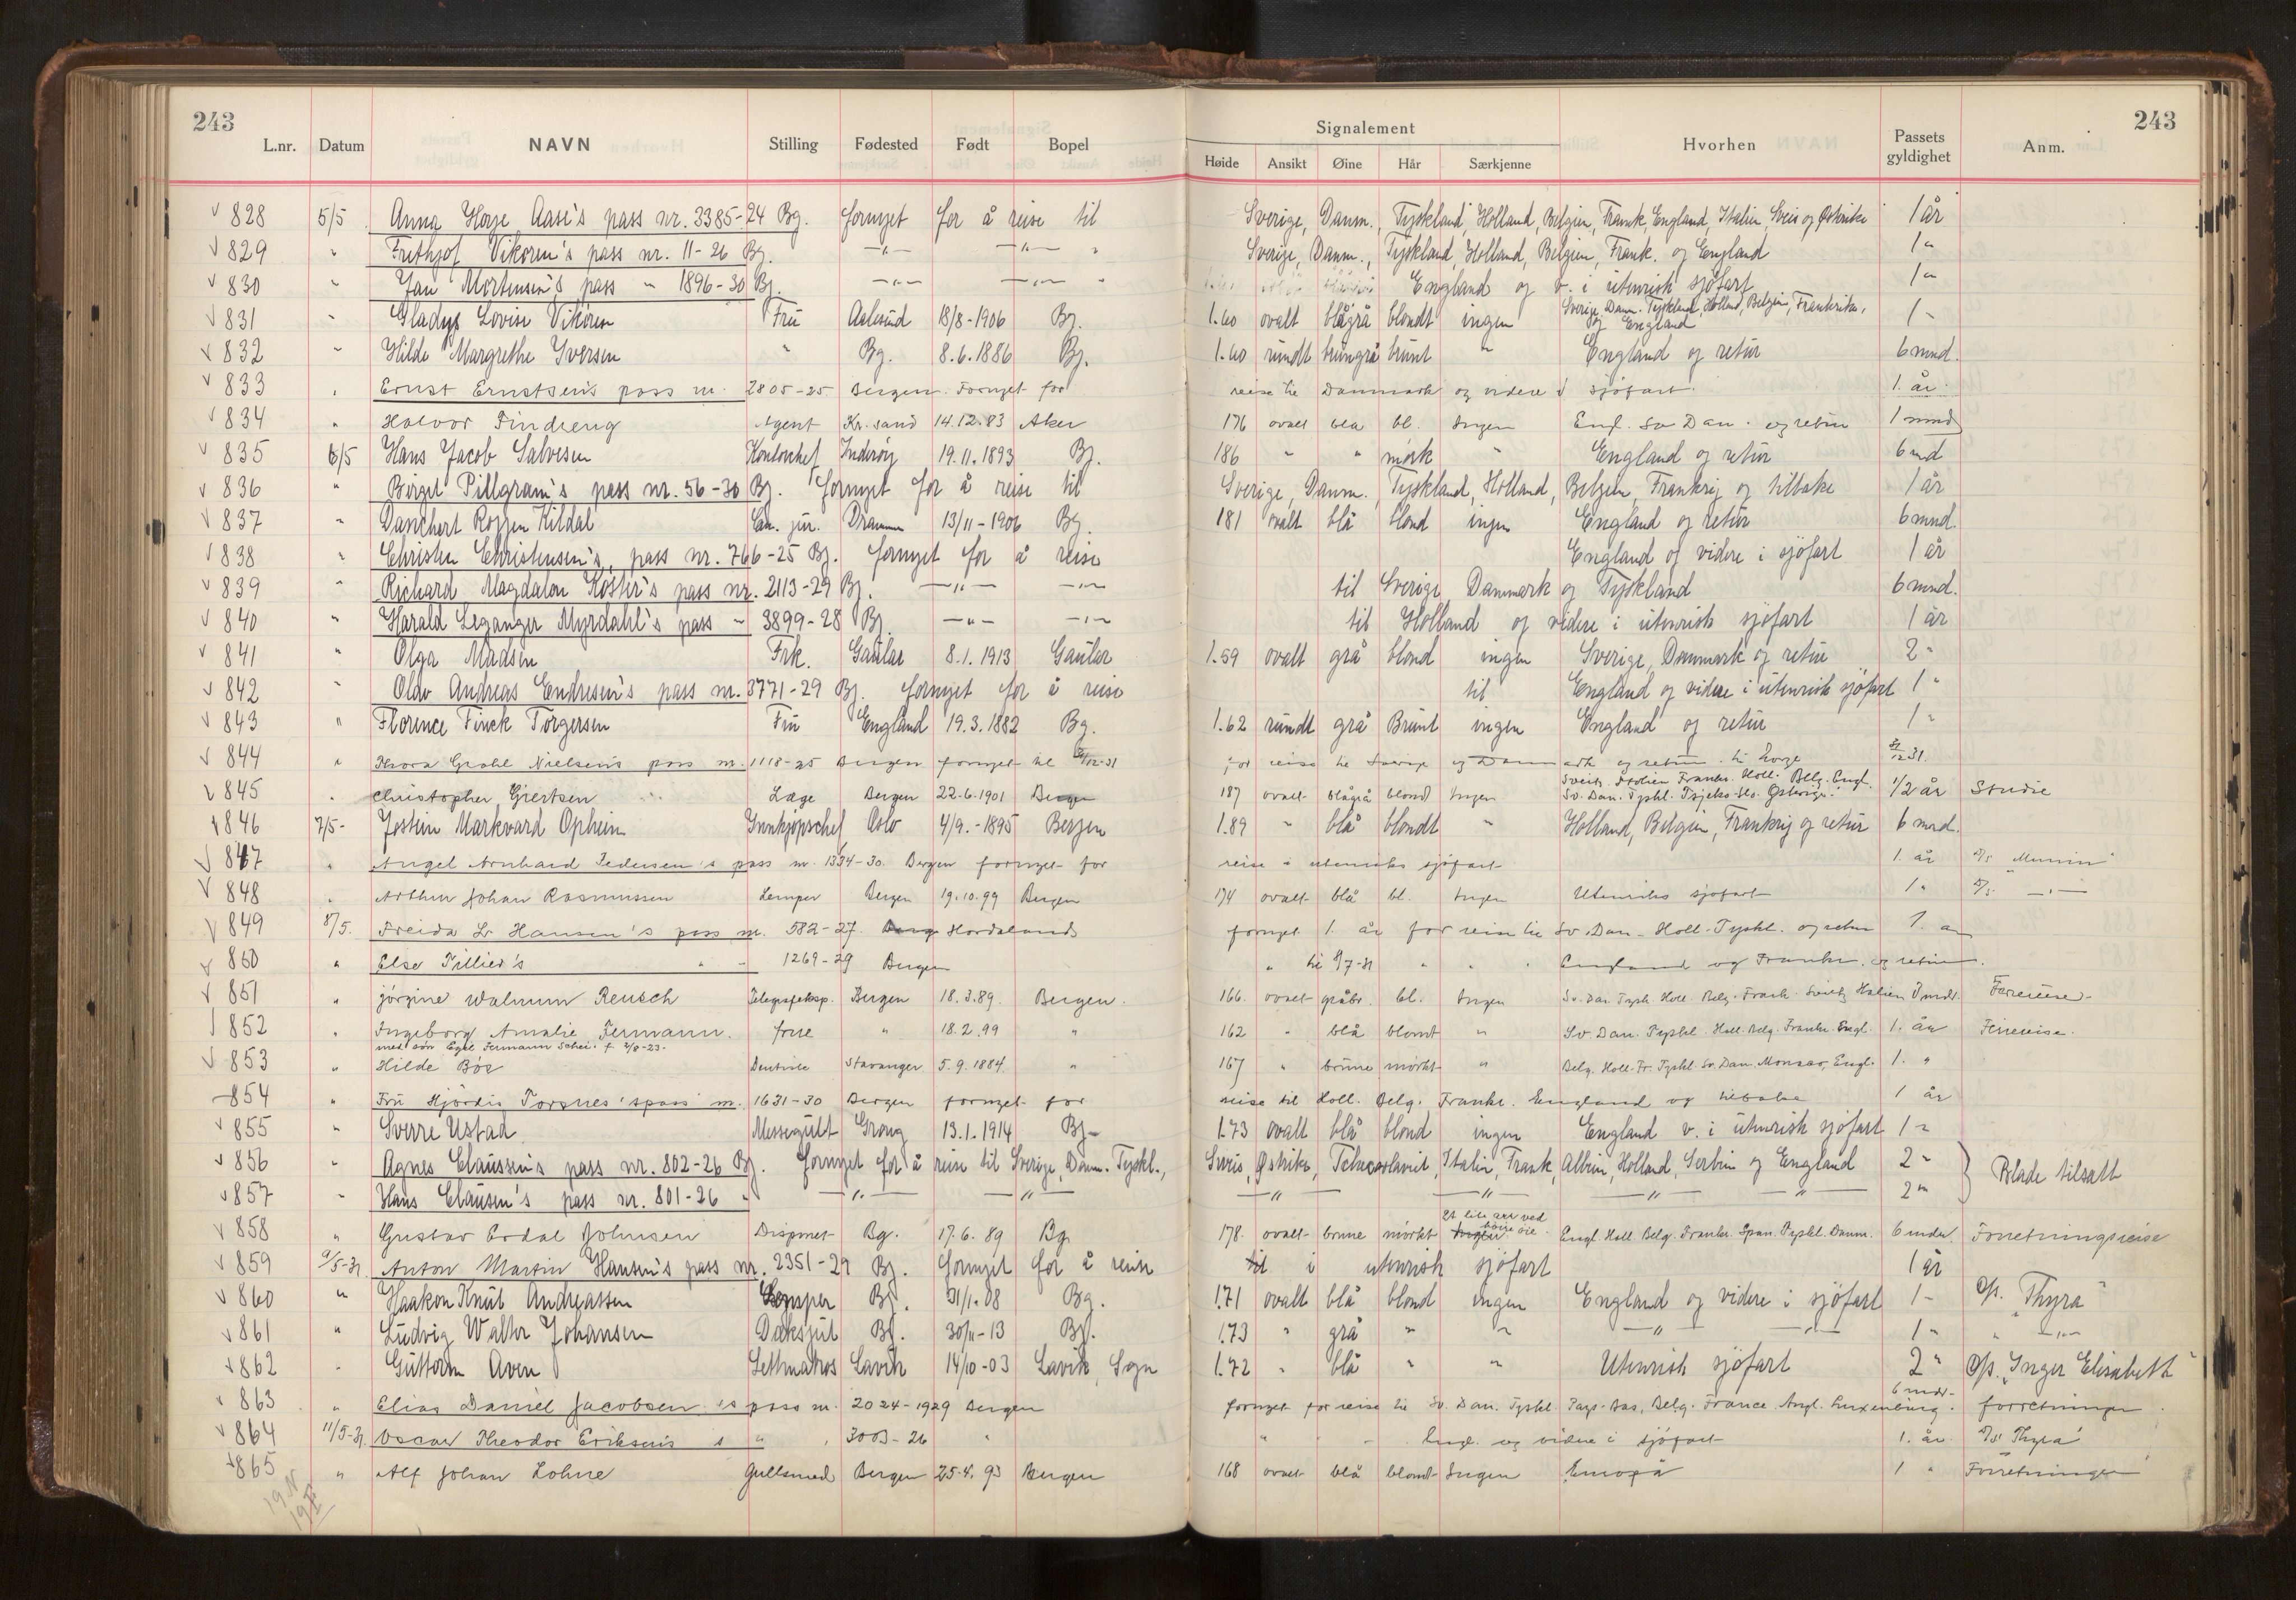 243
243
L.nr. Datum NAVN Stilling Fødested Født Bopel Signalement Hvorhen Passets gyldighet Anm.
Høide Ansikt Øine Hår Særkjenne
828 5/5 Anna Horge Aase's pass nr. 3385-24 Bg. fornyet for å reise til Sverige, Danm., Tyskland, Holland, Belgien, Frank, England, Italien, Sveis og Østrike 1 år
829 " Frithjof Vikøren's pass nr. 11-26 Bg. —"— —"— " Sverige, Danm., Tyskland, Holland, Belgien, Frank. og England 1 "
830 " Jan Mortensen's pass " 1896-30 Bg. —"— —"— " England og v. i utenrisk sjøfart 1 "
831 " Gladys Lovise Vikøren Fru Aalesund 18/8-1906 Bg. 1.60 ovalt blågrå blondt ingen Sverige, Danm. Tyskland, Holland, Belgien, Frankrike, og England 1 "
832 " Hilde Margrethe Iversen " Bg. 8.6.1886 Bg. 1.60 rundt brungrå brunt " England og retur 6 mnd.
833 " Ernst Ernstsen's pass nr. 2805-25 Bergen. Fornyet for reise til Danmark og videre i sjøfart. 1. år
834 " Halvor Findreng Agent Kr.sand 14.12.83 Aker 176 ovalt blå bl. Ingen Engl. Sv Dan. og retur 1 mnd
835 6/5 Hans Jacob Salvesen Kontorchef Inderøy 19.11.1893 Bg. 186 " " mørk " England og retur 6 md
836 " Birgit Pillgram's pass nr. 56-30 Bg. fornyet for å reise til Sverige, Danm. Tyskland, Holland, Belgien, Frankrig og tilbake 1 år
837 " Danchert Roggen Kildal Can. jur. Drammen 13/11-1906 Bg. 181 ovalt blå blond ingen England og retur 6 mnd.
838 " Christen Christensen's pass nr. 766-25 Bg. fornyet for å reise England og videre i sjøfart 1 år
839 " Richard Magdalon Koster's pass nr. 2113-29 Bg. —"— —"— til Sverige, Danmark og Tyskland 6 mnd.
840 " Harald Leganger Myrdahl's pass " 3899-28 Bg. —"— —"— til Holland og videre i utenrisk sjøfart 1 år
841 " Olga Madsen Frk. Gaular 8.1.1913 Gaular 1.59 ovalt grå blond ingen Sverige, Danmark og retur 2 "
842 " Olav Andreas Endresen's pass nr. 3771-29 Bg. fornyet for å reise til England og videre i utenrisk sjøfart 1 "
843 " Florence Finck Torgersen Fru England 19.3.1882 Bg. 1.62 rundt grå Brunt ingen England og retur 1 "
844 " Thora Grahl Nielsen's pass nr. 1118-25 Bergen fornyet til 31/12-31 for reise til Sverige og Danmark og retur til Norge 31/12 31.
845 " Christopher Gjertsen Læge Bergen 22-6.1901 Bergen 187 ovalt blågrå blond Ingen Sveits Italien Frankr. Holl. Belg. Engl. Sv. Dan. Tyskl. Tsjeko-Slo. Østerige. 1/2 år Studie
846 7/5- Jostein Markvard Opheim Innkjøpschef Oslo 4/9.-1895 Bergen 1.89 " blå blondt " Holland, Belgien, Frankrig og retur 6 mnd.
847 " Angel Arnhard Pedersen's pass nr. 1334-30. Bergen fornyet for reise i utenriks sjøfart 1. år D/S "Munin"
848 " Arthur Johan Rasmussen Lemper Bergen 19.10.99 Bergen 174 ovalt blå bl. Ingen Utenriks sjøfart 1 " D/S. —"—
849 8/5. Freida L. Hansen's pass nr. 582-27. Hordalands fornyet 1. år for reise til Sv. Dan. Holl. Tyskl. og retur 1. år
860 " Else Tillier's " " 1269-29 Bergen " til 9/7-31 " " England og Frankr. og retur.
851 " Jørgine Walnum Reusch Telegrafeksp. Bergen 18.3.89. Bergen. 166. ovalt gråbr. bl. Ingen Sv. Dan. Tyskl. Holl. Belg. Frank. Sveits Italien 3 mndr. Ferieise-
852 " Ingeborg Amalie Fermann. frue " 18.2.99 " 162 " blå blondt " Sv. Dan. Tyskl. Holl. Belg. Frankr. Engl. 1. år Feriereise.
med søn Egil Fermann Schei. f. 2/8-23-
853 " Hilde Bøe Dentiste Stavanger 5.9.1884. " 167 " brune mørkt " Belg. Holl. Fr. Tyskl. Sv. Dan. Monaco, Engl. 1. "
854 " Fru Hjørdis Torsnes' spass nr. 1631-30 Bergen fornyet for reise til Holl. Belg. Frankr. England og tilbake 1 år
855 " Sverre Ustad Messegutt Grong 13.1.1914 Bg- 1.73 ovalt blå blond ingen England v. i utenrisk sjøfart 1 "
856 " Agnes Claussen's pass nr. 802-26 Bg. fornyet for å reise til Sverige, Danm. Tyskl., Sveis, Østrike, Italien, Frank, Holland, Serbien og England 2 " Blade tilsatt
857 " Hans Clausen's pass nr. 801-26 " —"— —"— —"— —"— —"— —"— 2 "
858 " Gustav Erdal Johnsen Disponet Bg. 17.6.89 Bg. 178. ovalt brune mørkt Et lite arr ved høire øie. Engl. Holl. Belg. Frankr. Span. Tyskl. Danm. 6 mndr. Forretningsreise
859 9/5-31. Anton Martin Hansen's pass nr. 2351-29 Bg. fornyet for å reise i utenrisk sjøfart 1 år
860 " Haakon Knut Andreassen Lemper Bg. 31/1.08 Bg. 1.71 ovalt blå blond ingen England og videre i sjøfart 1 - D/S. "Thyra"
861 " Ludvig Walter Johansen Daksgut Bg. 30/11-13 Bg. 1.73 " grå " " —"— —"— 1 " " —"—
862 " Guttorm Aven Lettmatros Lavik 14/10-03 Lavik, Sogn 1.72 " blå " " Utenrisk sjøfart 2 " D/S. "Inger Elisabeth"
863 " Elias Daniel Jacobsen's pass nr. 2024-1929 Bergen fornyet for reise til Sv. Dan. Tyskl. Pays-Bas, Belg. France. Angl. Luxenburg. 6 mdr- forretninger.
864 11/5-31. Oscar Theodor Eriksen's " 3003-26 " " Engl. og videre i sjøfart 1. år. D/S "Thyra"
865 " Alf Johan Lohne Gullsmed Bergen 25.4.93 Bergen 168 ovalt blå blondt Ingen Europa 1 " Forretninger